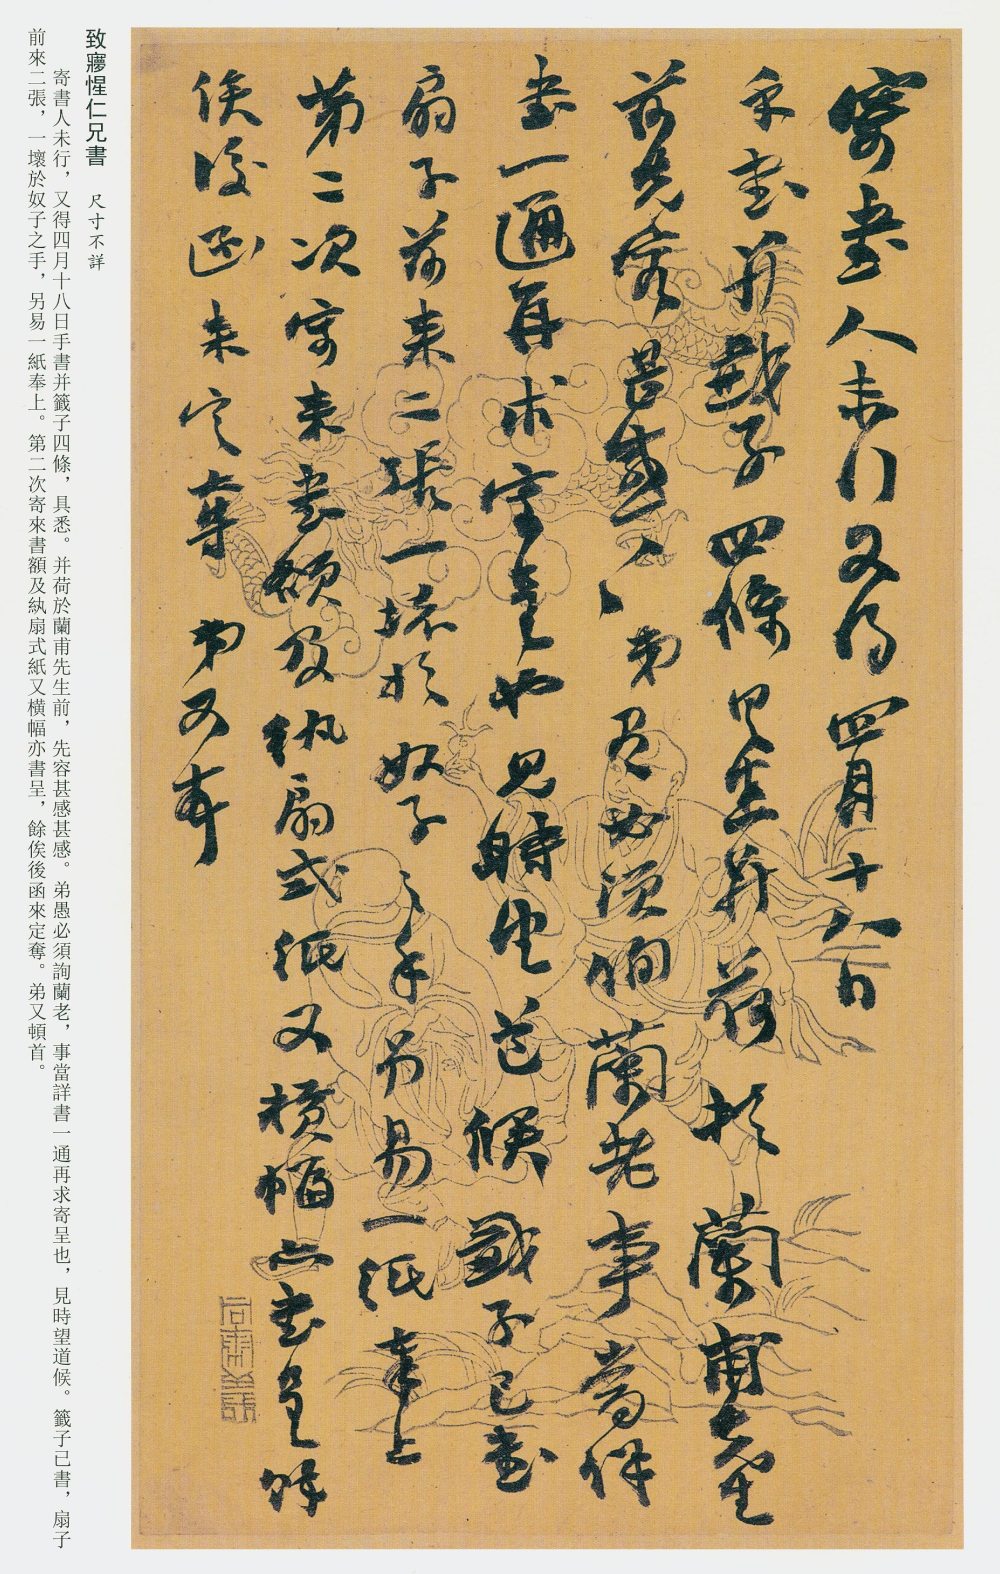 寄書人未行又得四月十八日
手書并籤子四條具悉并荷於蘭甫先生
前先容甚感〻〻弟愚必須詢蘭老事當詳
書一通再求寄呈也見時望道候籤子已書
扇子前來二張一壞於奴子之手另易一紙奉上
第二次寄來書額及紈扇式紙又橫幅亦書呈餘
俟後函來定奪弟又頓首
致惺仁兄書 尺寸不詳
寄書人未行，又得四月十八日手書并籤子四條，具悉。并荷於蘭甫先生前，先容甚感甚感。弟愚必須詢蘭老，事當詳書一通再求寄呈也，見時望道候。籤子已書，扇子
前來二張，一壞於奴子之手，另易一紙奉上。第二次寄來書額及紈扇式紙又橫幅亦書呈，餘俟後函來定奪。弟又頓首。